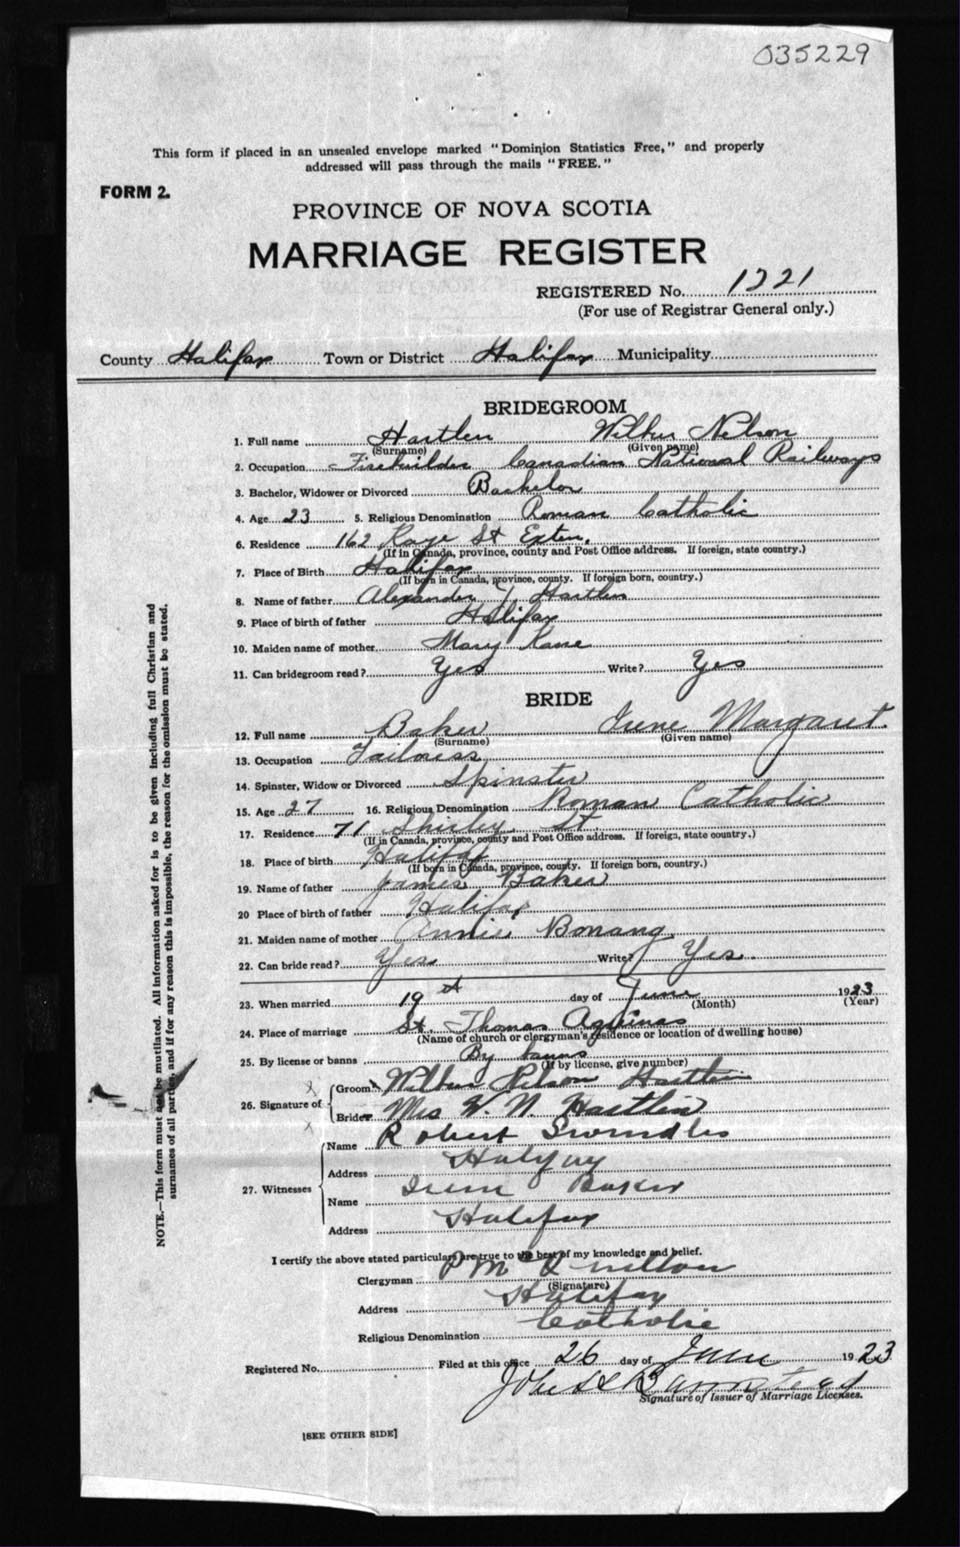 035229
This form if placed in an unsealed envelope marked "Dominion Statistics Free," and properly
addressed will pass through the mails "FREE."
FORM 2.
PROVINCE OF NOVA SCOTIA
MARRIAGE REGISTER
REGISTERED No. 1221
(For use of Registrar General only.)
County Halifax Town or District Halifax Municipality
BRIDEGROOM
1. Full name Hartlen Wilbur Nelson
(Surname) (Given name)
2. Occupation Firebuilder Canadian National Railways
3. Bachelor, Widower or Divorced Bachelor
4. Age 23 5. Religious Denomination Roman Catholic
6. Residence 162 St Exten.
(If in Canada, province, county and Post Office address. If foreign, state country.)
7. Place of Birth Halifax
(If born in Canada, province, county. If foreign born, country.)
8. Name of father Alexander J. Hartlen
9. Place of birth of father Halifax
10. Maiden name of mother Mary Kane
11. Can bridegroom read? Yes Write? Yes
BRIDE
12. Full name Baker Irene Margaret
(Surname) (Given name)
13. Occupation Tailoress
14. Spinster, Widow or Divorced Spinster
15. Age 27 16. Religious Denomination Roman Catholic
17. Residence 71 Shirley St.
(If in Canada, province, county and Post Office address. If foreign, state country.)
18. Place of birth Halifax
(If born in Canada, province, county. If foreign born, country.)
19. Name of father James Baker
20 Place of birth of father Halifax
21. Maiden name of mother Annie Bonang
22. Can bride read? Yes Write? Yes.
23. When married 19th day of June 1923
(Month) (Year)
24. Place of marriage St. Thomas Aquinas
(Name of church or clergyman's residence or location of dwelling house)
25. By license or banns By banns
(If by license, give number)
26. Signature of
Groom Wilbur Nelson Hartlen
Bride Mrs W. N. Hartlen
27. Witnesses
Name Robert Swindles
Address Halifax
Name Irene Baker
Address Halifax
I certify the above stated particulars are true to the best of my knowledge and belief.
Clergyman
(Signature)
Address Halifax
Religious Denomination Catholic
Registered No. Filed at this office 26 day of June 1923
John H Barnstead
Signature of Issuer of Marriage Licenses.
[SEE OTHER SIDE]
NOTE.—This form must not be mutilated. All information asked for is to be given including full Christian and
surnames of all parties, and if for any reason this is impossible, the reason for the omission must be stated.